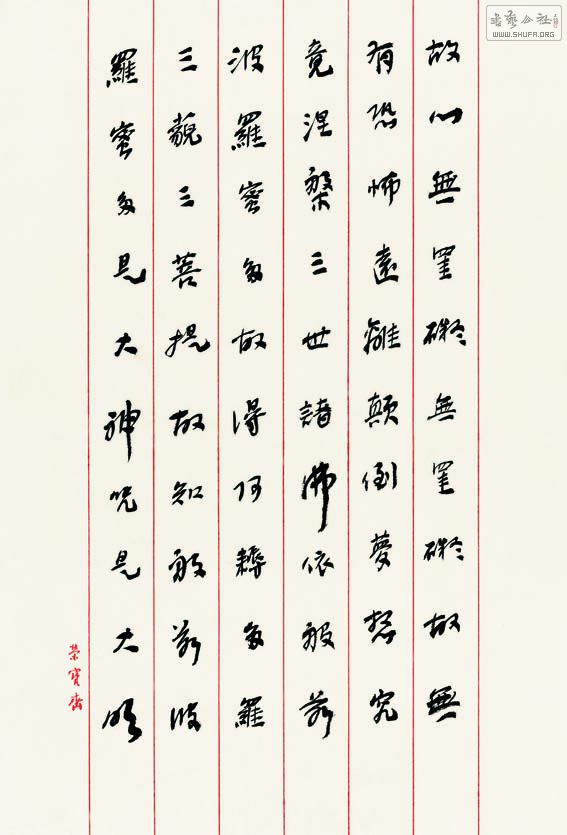 书艺公社
WWW.SHUFA.ORG
故心無罣礙無罣礙故無
有恐怖遠離顛倒夢想究
竟涅槃三世諸佛依般若
波羅蜜多故得阿耨多羅
三藐三菩提故知般若波
羅蜜多是大神咒是大明
榮寶齋